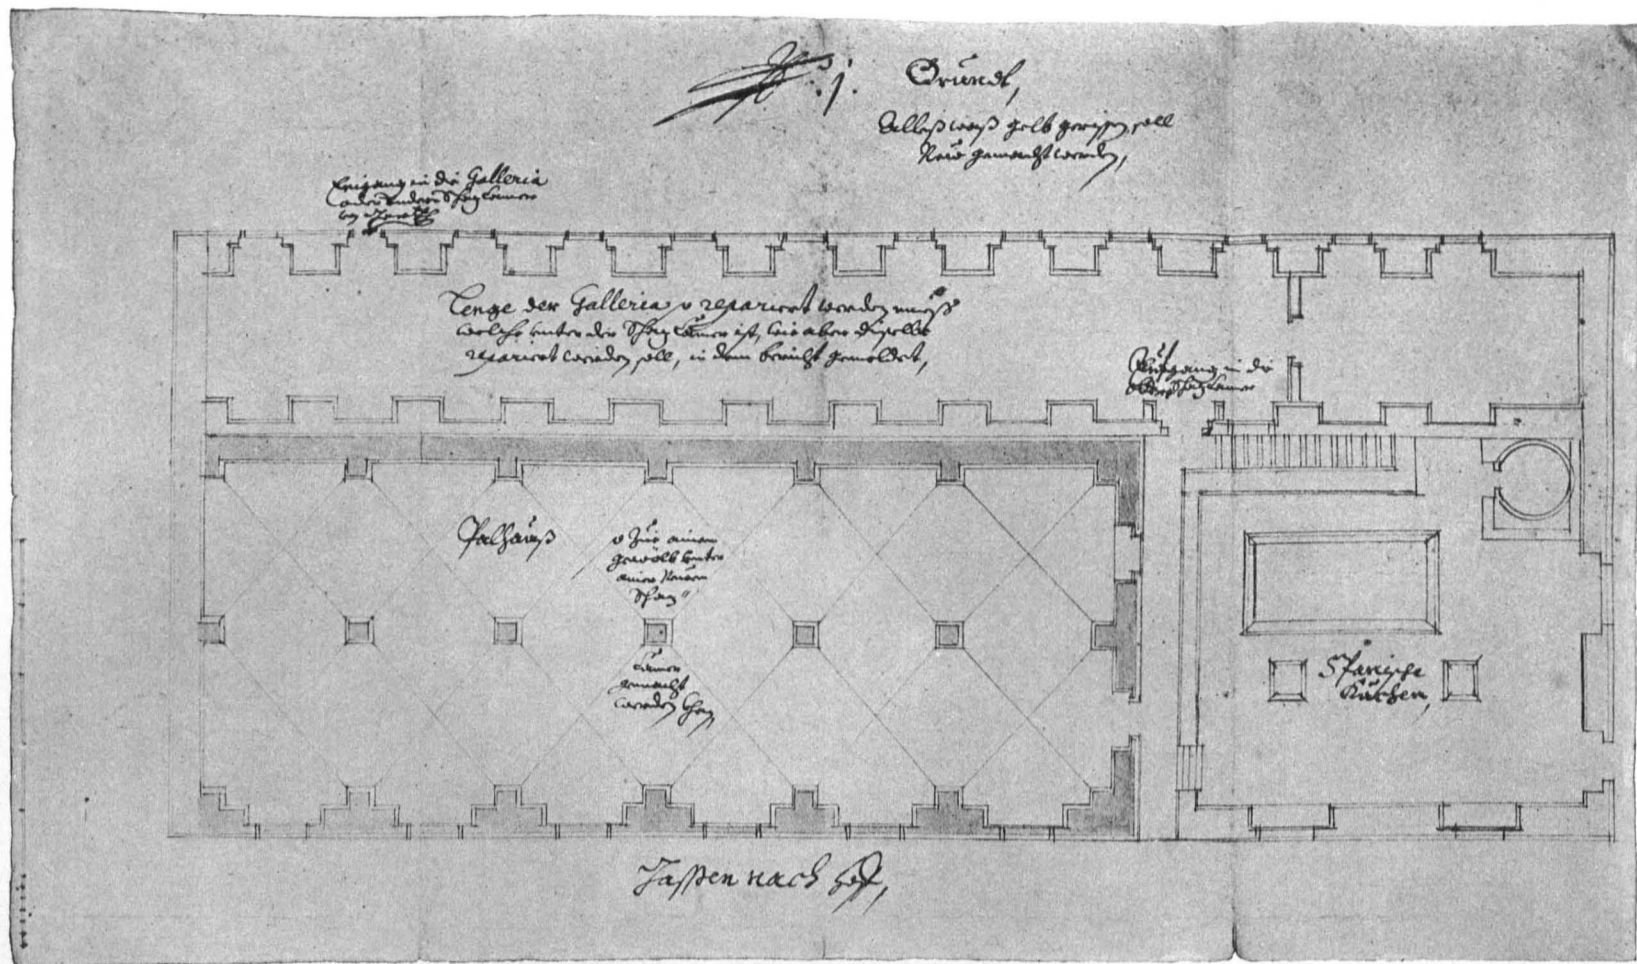 Nº: j. Grundt,
Alleß waß gelb gerissen, soll
Neu gemacht werden,
Eingang in die Galleria
oder undere Schaz Camer
Lenge der Galleria, repariert werden mueß
welche unter der Schaz Camer ist, wie aber dieselbe
repariert werden soll, in dem bericht gemeldet,
Aufgang in die
obere Schaz Camer
Palhauß
Zue einem
gewölb unter
einer Neuen
Schaz
Camer
gemacht
werden
Spanische
Kuchen,
Gassen nach hof,